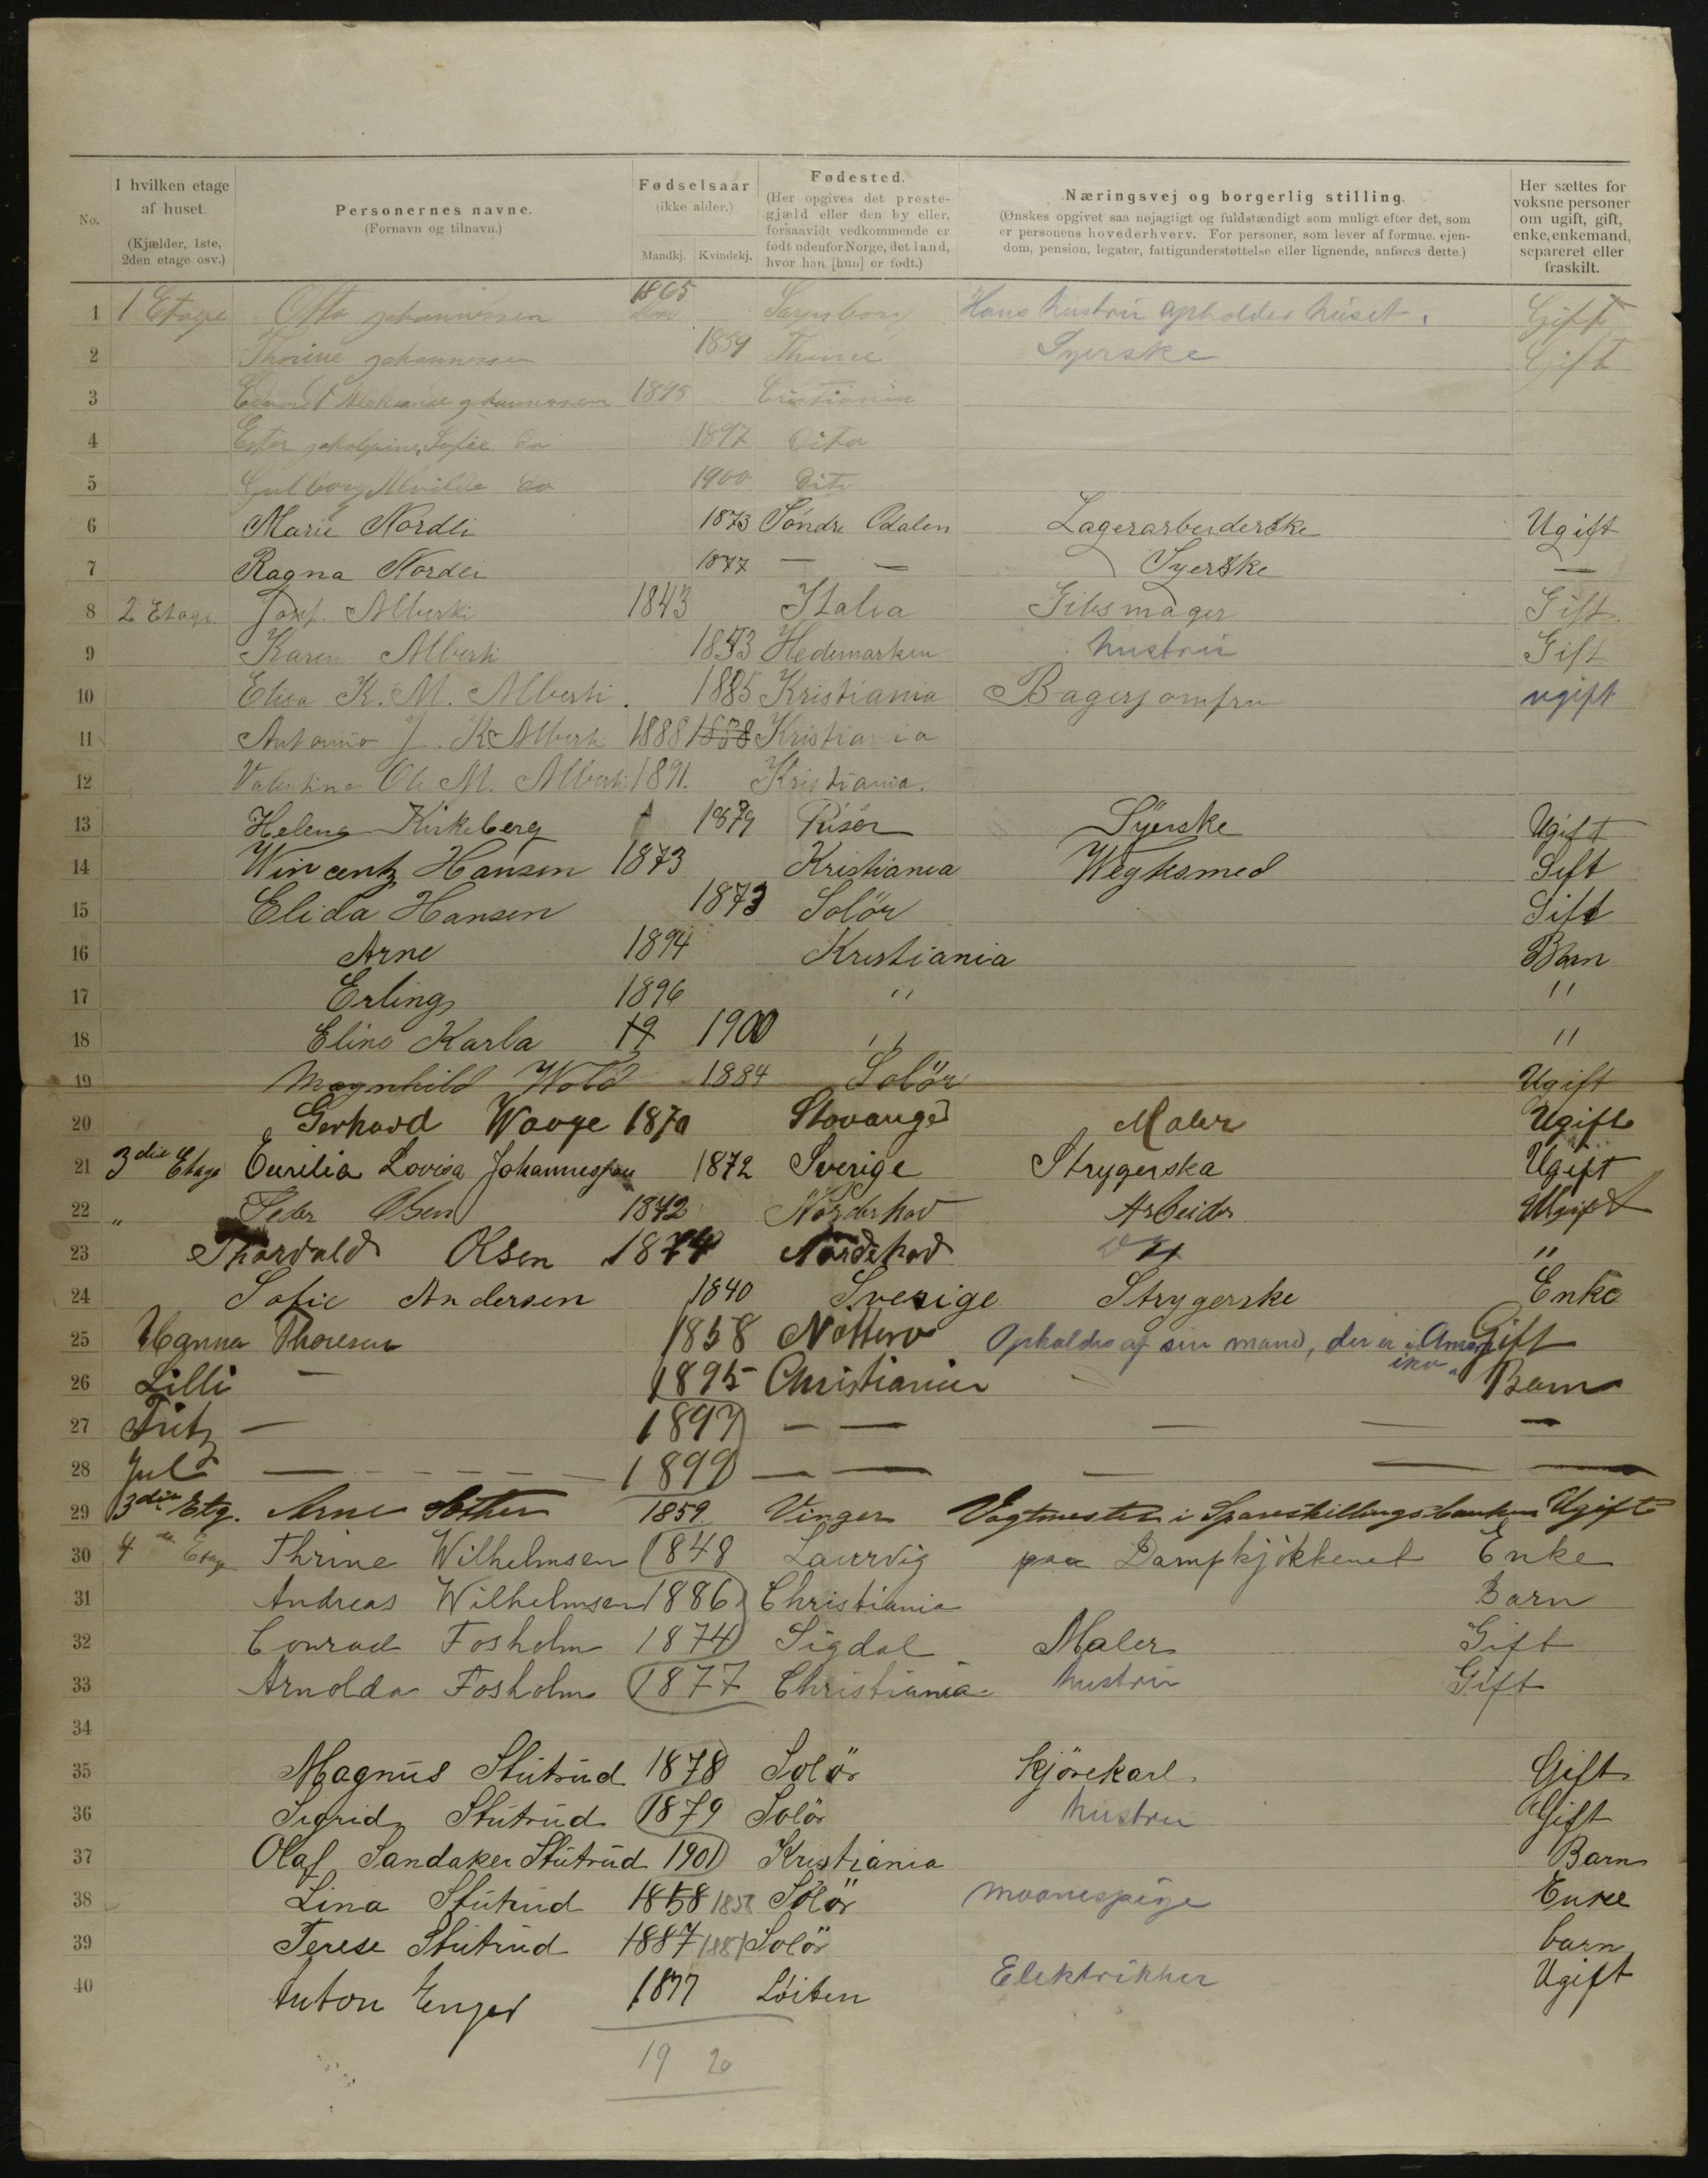 No.
I hvilken etage
af huset.
(Kjælder, 1ste,
2den etage osv.)
Personernes navne.
(Fornavn og tilnavn.)
Fødselsaar
(ikke alder.)
Mandkj. Kvindekj.
Fødested.
(Her opgives det preste-
gjæld eller den by eller,
forsaavidt vedkommende er
født udenfor Norge, det land,
hvor han [hun] er født.)
Næringsvej og borgerlig stilling.
(Ønskes opgivet saa nøjagtigt og fuldstændigt som muligt efter det, som
er personens hovederhverv. For personer, som lever af formue, ejen-
dom, pension, legater, fattigunderstøttelse eller lignende, anføres dette.)
Her sættes for
voksne personer
om ugift, gift,
enke, enkemand,
separeret eller
fraskilt.
1 1 Etage Otto Johannesen 1865 Sarpsborg Hans hustru opholdes huset. Gift
2 Thorine Johannesen 1859 Gift Syerske
3 1895 Cristiania
4 Ester Sofie do 1897 Dito
5 Gulborg Alvilde do 1900 Dito
6 Marie Nordli 1873 Søndre Odalen Lagerarbeiderske Ugift
7 Ragna Nordli 1877 — — Syerske —
8 2 Etage Alberti 1843 Italia Gibsmager Gift
9 Karen Alberti 1853 Hedemarken hustru Gift
10 Elisa K. M. Alberti. 1885 Kristiania Bagerjomfru ugift
11 Antonio J. K. Alberti 1888 1888 Kristiania
12 Valentino Ole M. Alberti 1891. Kristiania.
13 Helena Kirkeberg 1879 Risör Syerske Ugift
14 Wincentz Hansen 1873 Kristiania Wegtsmed Gift
15 Elida Hansen 1873 Solör Gift
16 Arne 1894 Kristiania Barn
17 Erling 1896 " "
18 Elino Karla 19 1900 " "
19 Magnhild Wold 1884 Solör Ugift
20 Gerhard Waage 1870 Stavanger Maler Ugift
21 3die Etage Lovisa Johannesson 1872 Sverige Strygerska Ugift
22 " Peder Olsen 1842 Norderhov Arbeider Ugift
23 Thorvald Olsen 1874 Norderhov "
24 Sofie Andersen 1840 Sverige Strygerske Enke
25 Hanna Thoresen 1858 Nötterø Opholdes af sin mand, der er i Amer- Gift
ika.
26 Lilli — 1895 Christiania — Barn
27 Fritz — 1897 — — — — —
28 Jul — 1899 — — — — —
29 3die Etg. Arne 1859. Vinger Vagtmester i Spareskillingsbanken Ugift
30 4de Etage Thrine Wilhelmsen 1848 Laurvig paa Dampkjökkenet Enke
31 Andreas Wilhelmsen 1886 Christiania Barn
32 Conrad Fosholm 1874 Sigdal Maler Gift
33 Arnolda Fosholm 1877 Christiania hustru Gift
34
35 Magnus Stutrud 1878 Solör Kjörekarl Gift
36 Sigrid Stutrud 1879 Solör hustru Gift
37 Olaf Sandaker Stutrud 1901 Kristiania Barn
38 Lina Stutrud 1858 1858 Solör Enke
39 Terese Stutrud 1887 1887 Solör barn
40 Anton Enger 1877 Löiten Elektrikker Ugift
19 20